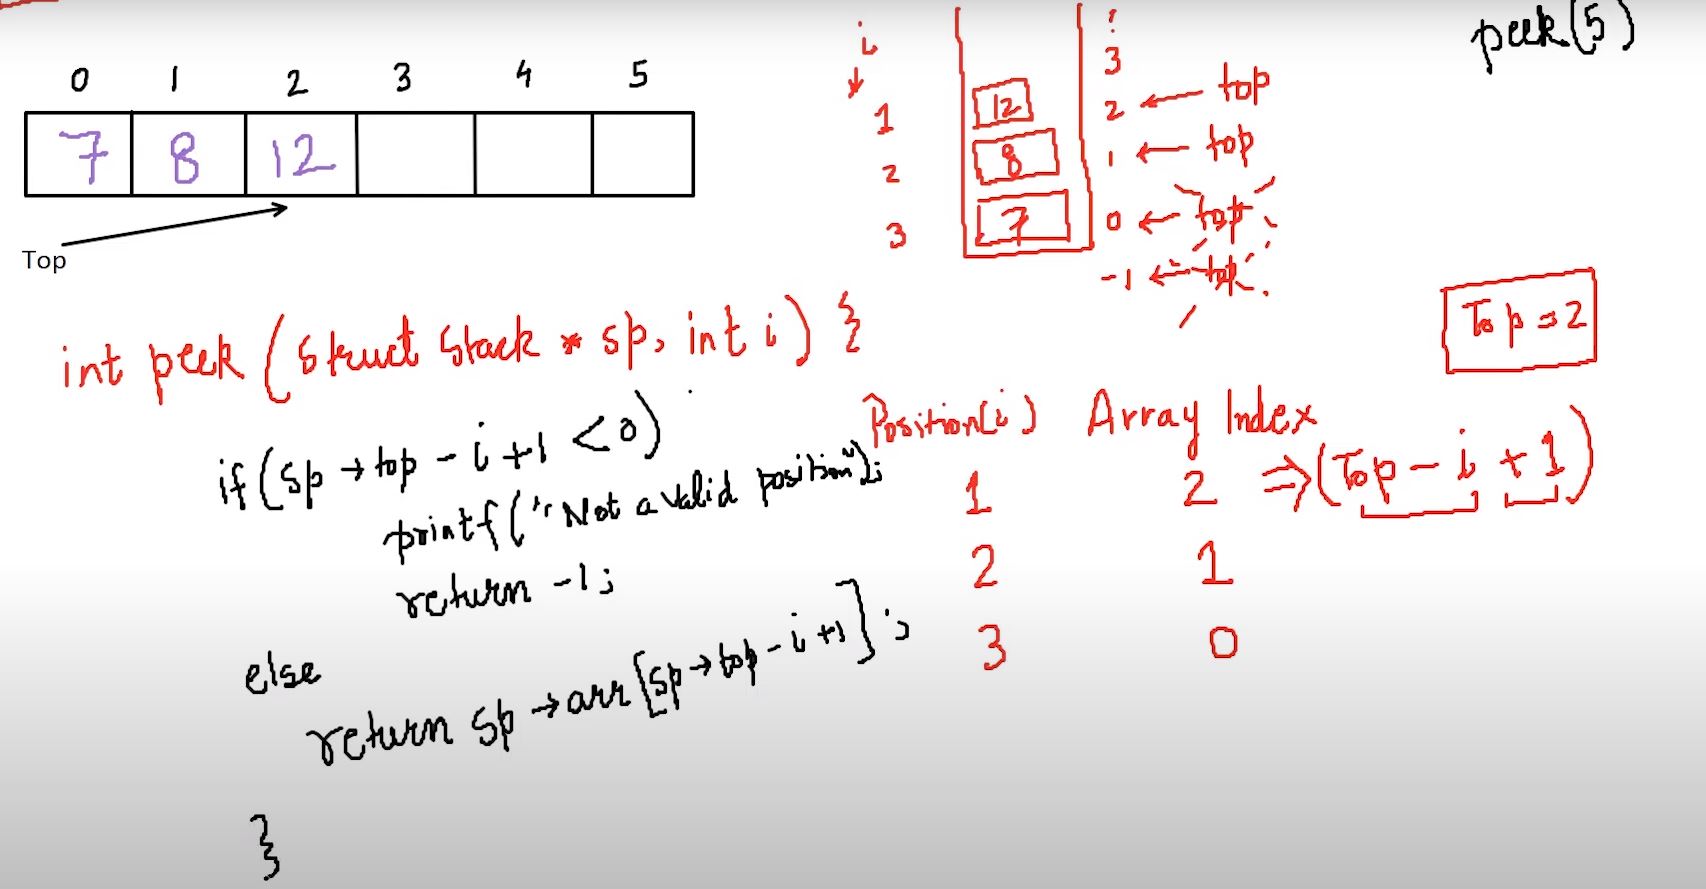 peek(5)
0 1 2 3 4 5
7 8 12
Top
i
3
1 12 2 ← top
2 8 1 ← top
3 7 0 ← top
-1 ← top
Top = 2
int peek (struct stack * sp, int i) {
if (sp → top - i + 1 < 0)
printf ("Not a valid position");
return -1;
else
return sp → arr [sp → top - i + 1];
}
Position(i) Array Index
1 2 ⇒ (Top - i + 1)
2 1
3 0